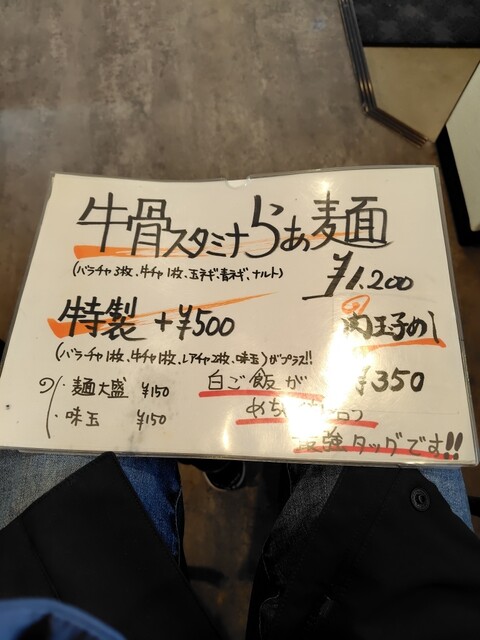 牛骨スタミナらぁ麺
(バラチャ3枚、牛チャ1枚、玉ネギ、青ネギ、ナルト)
¥1.200
特製 +¥500
(バラチャ1枚、牛チャ1枚、レアチャ2枚、味玉)がプラス!!
肉玉子めし
¥350
・麺大盛 ¥150
・味玉 ¥150
白ご飯が
めちゃ
最強タッグです!!